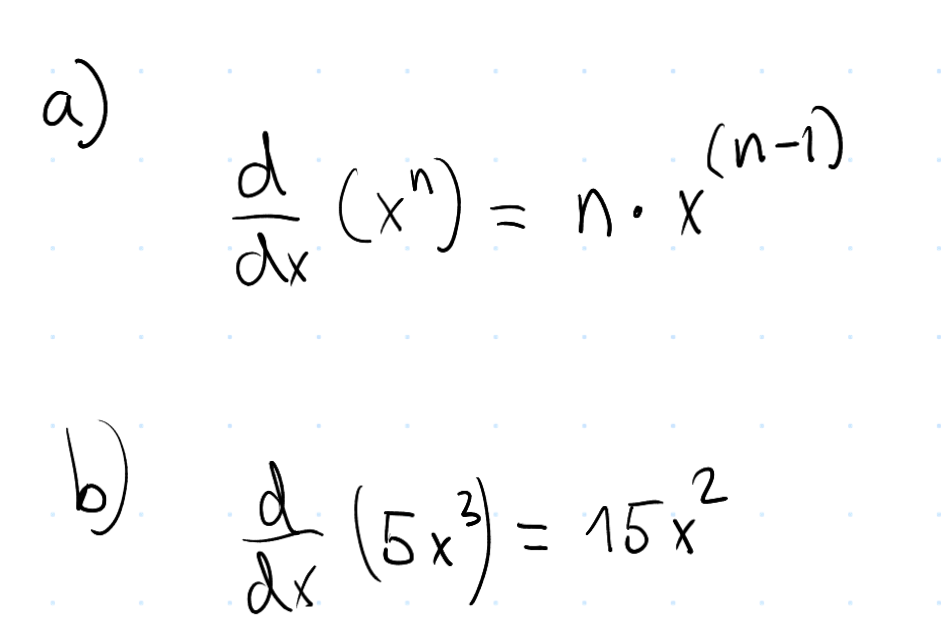 a)
d/dx (xⁿ) = n · x⁽ⁿ⁻¹⁾
b)
d/dx (5x³) = 15x²